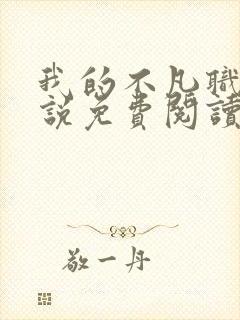 我的不凡職
說免費閱讀
敬一丹